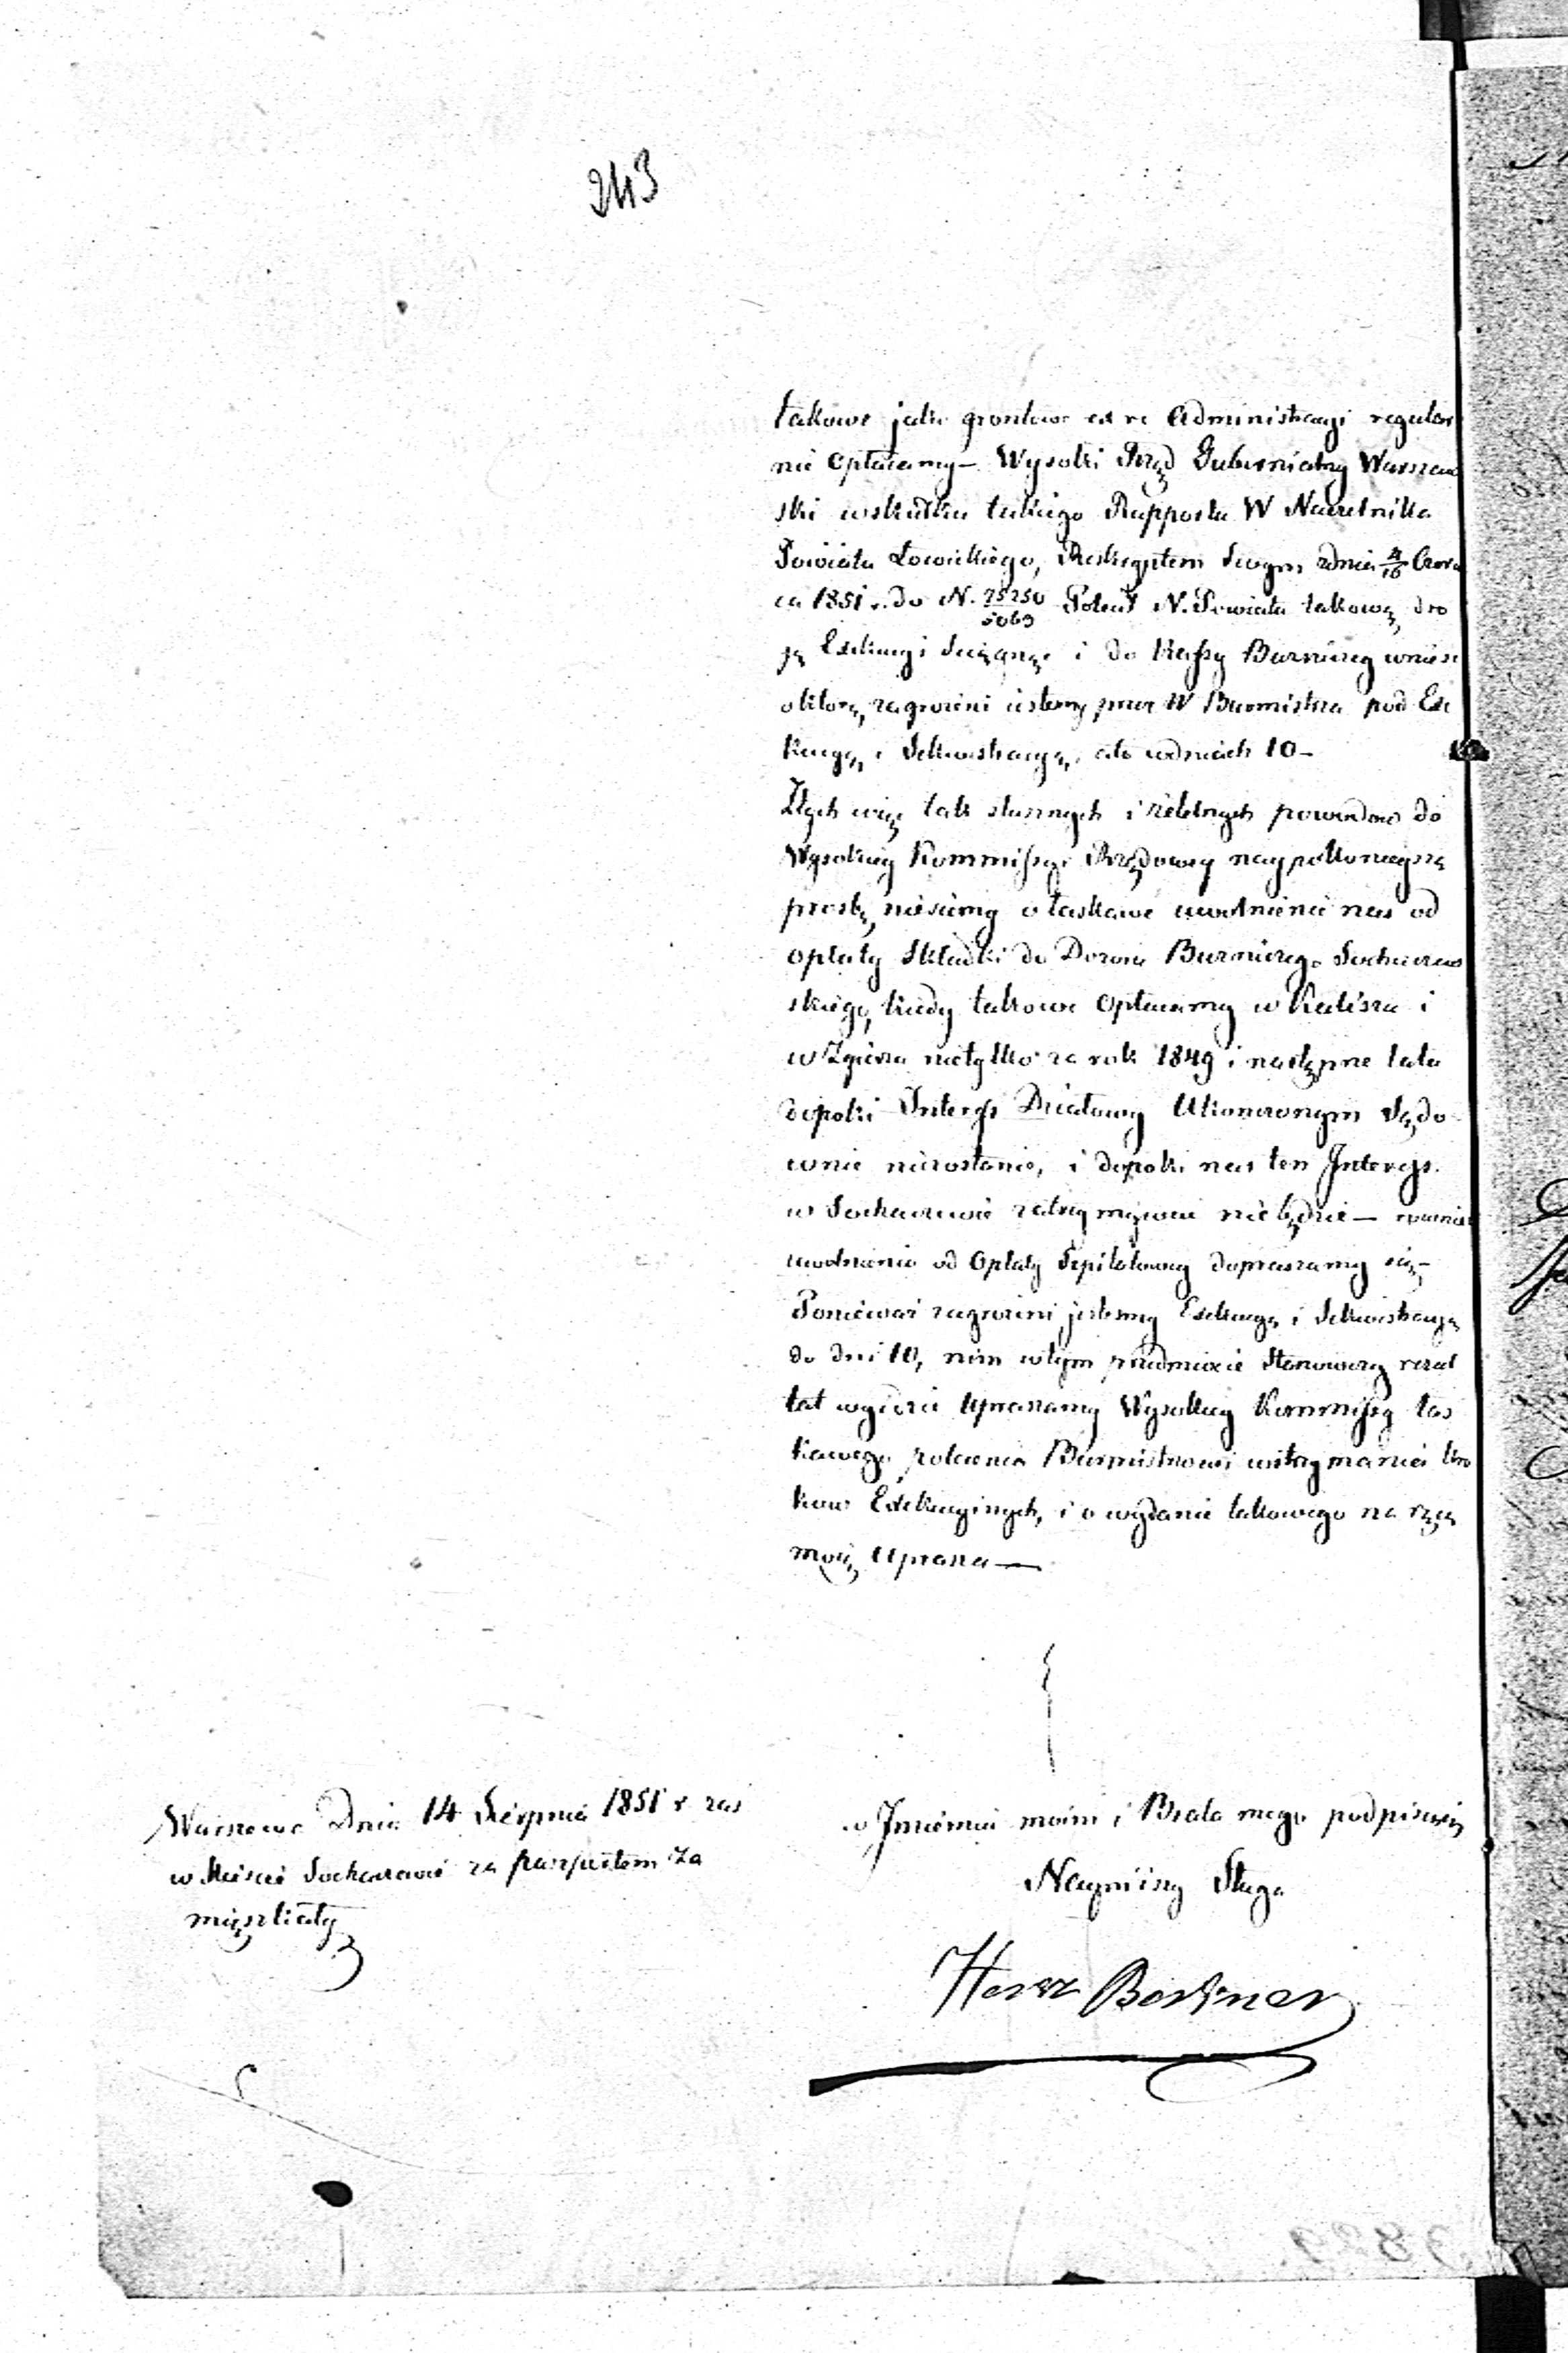 243
takowe jako gruntowe Administracyi regular
nie opłacamy — Wysoki Rząd Gubernialny Warszaw
ski wskutku takiego Rapportu W Naczelnika
Powiatu Łowickiego, Reskryptem swoym zdnia 4/16 Czerw
ca 1851 r. do N. 25250/5069 Polecił N. Powiatu takową dro
gą Exekucyi ściągnąć i do Kassy Bużniczey wnieść
o którą zagrożeni jestemy przez W Burmistrza pod Exe
kucyą i Sekwestracyą, ato wdniach 10 —
Ztych więc tak słusznych i rzetelnych powodów do
Wysokiey Kommissyi Rządowey naypokornieyszą
prośbę niesiemy o łaskawe uwolnienie nas od
opłaty Składki do Dozoru Bużniczego Sochaczew
skiego, kiedy takowe opłacamy w Kaliszu i
w Zgierzu nietylko za rok 1849 i następne lata
dopoki Interess Działowy Ukonczonym Sędo
wnie niezostanie, i dopoki nas ten Interess
w Sochaczewie zatrzymywać niebędzie — rownież
uwolnienia od Opłaty Szpitalowey dopraszamy się —
Ponieważ zagrożeni jestemy Exekucyą i Sekwestracyą
do dni 10, nim wtym przedmiocie stanowczy rezul
tat wyidzie upraszamy Wysokiey Kommissyi łas
kawego polecenia Burmistrzowi wstrzymania kro
kow Exekucyinych, i o wydanie takowego na ręce
moię uprasza —
Warszawa Dnia 14 Sierpnia 1851 r zaś
w Mieście Sochaczewie za paszportem Za
mięszkały
w Imieniu moim i Brata mego podpisuię
Nayniższy Sługa
Hersz Bertner